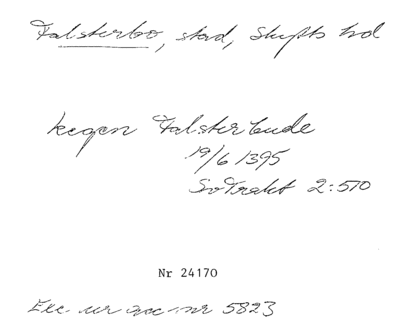 Falsterbo, stad, Skytts hd
kegen Falsterbude
19/6 1395
SvTrakt 2:570
Nr 24170
Exc. ur acc. nr 5823